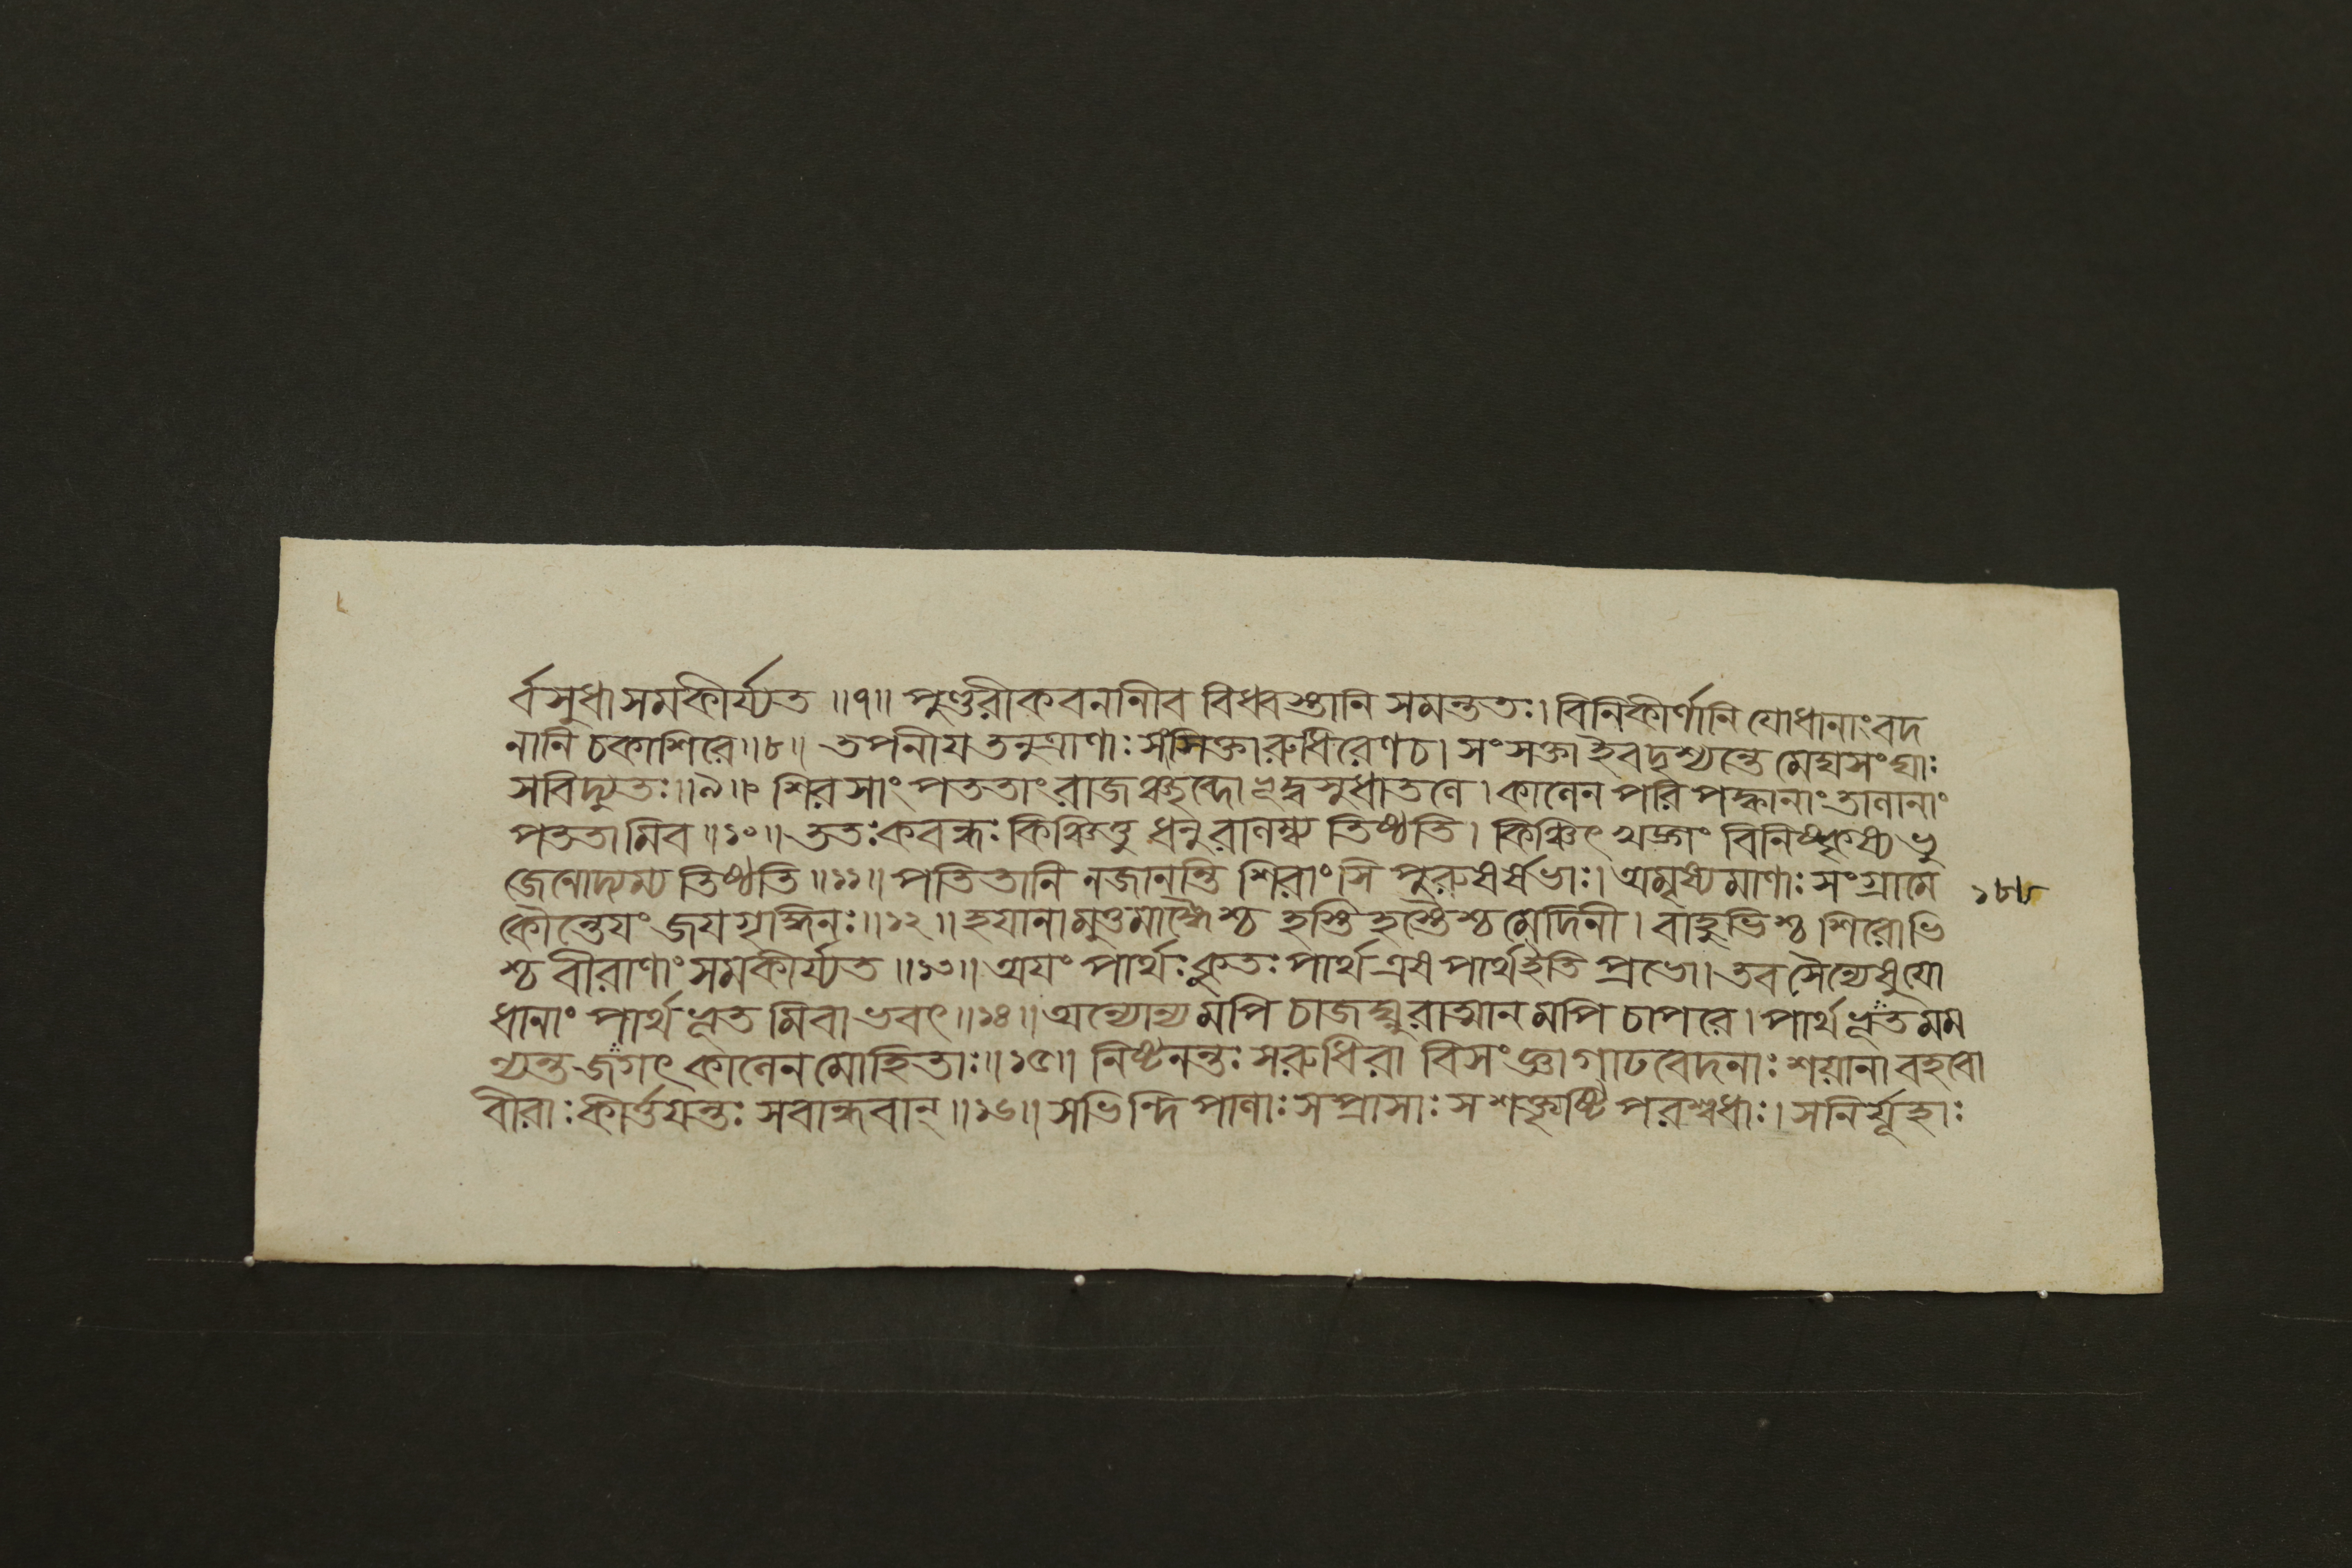 র্বসুধা সমকীর্য্যত ॥৭॥ পুণ্ডরীকবনানীব বিধ্বস্তানি সমন্ততঃ। বিনিকীর্ণানি যোধানাং বদ
নানি চকাশিরে॥৮॥ তপনীয তনুত্রাণাঃ সংসিক্তা রুধিরেণ চ। সংসক্তা ইব দৃশ্যন্তে মেঘসংঘাঃ
সবিদ্যুতঃ॥৯॥ শিরসাং পততাং রাজঞ্ছব্দোঽভূদ্বসুধাতলে। কালেন পরিপক্বানাং তালানাং
পততামিব॥১০॥ ততঃ কবন্ধঃ কিঞ্চিত্তু ধনুরালম্ব্য তিষ্ঠতি। কিঞ্চিৎ খড্গং বিনিষ্কৃষ্য ভু
জেনোদ্যম্য তিষ্ঠতি॥১১॥ পতিতানি ন জানন্তি শিরাংসি পুরুষর্ষভাঃ। অমৃষ্যমাণাঃ সংগ্রামে
কৌন্তেযং জযগৃদ্ধিনঃ॥১২॥ হযানামুত্তমাঙ্গৈশ্চ হস্তিহস্তৈশ্চ মেদিনী। বাহুভিশ্চ শিরোভি
শ্চ বীরাণাং সমকীর্য্যত॥১৩॥ অযং পার্থঃ কুতঃ পার্থ এষ পার্থ ইতি প্রভো। তব সৈন্যেষু যো
ধানাং পার্থভূতমিবাভবৎ॥১৪॥ অন্যোন্যমপি চাজঘ্নুরাত্মানমপি চাপরে। পার্থভূতমম
ন্যন্ত জগৎ কালেন মোহিতাঃ॥১৫॥ নিষ্টনন্তঃ সরুধিরা বিসংজ্ঞা গাঢবেদনাঃ শয়ানা বহবো
বীরাঃ কীর্ত্তযন্তঃ সবান্ধবান্॥১৬॥ সভিন্দিপালাঃ সপ্রাসাঃ সশক্ত্যৃষ্টিপরশ্বধাঃ। সনির্যূহাঃ